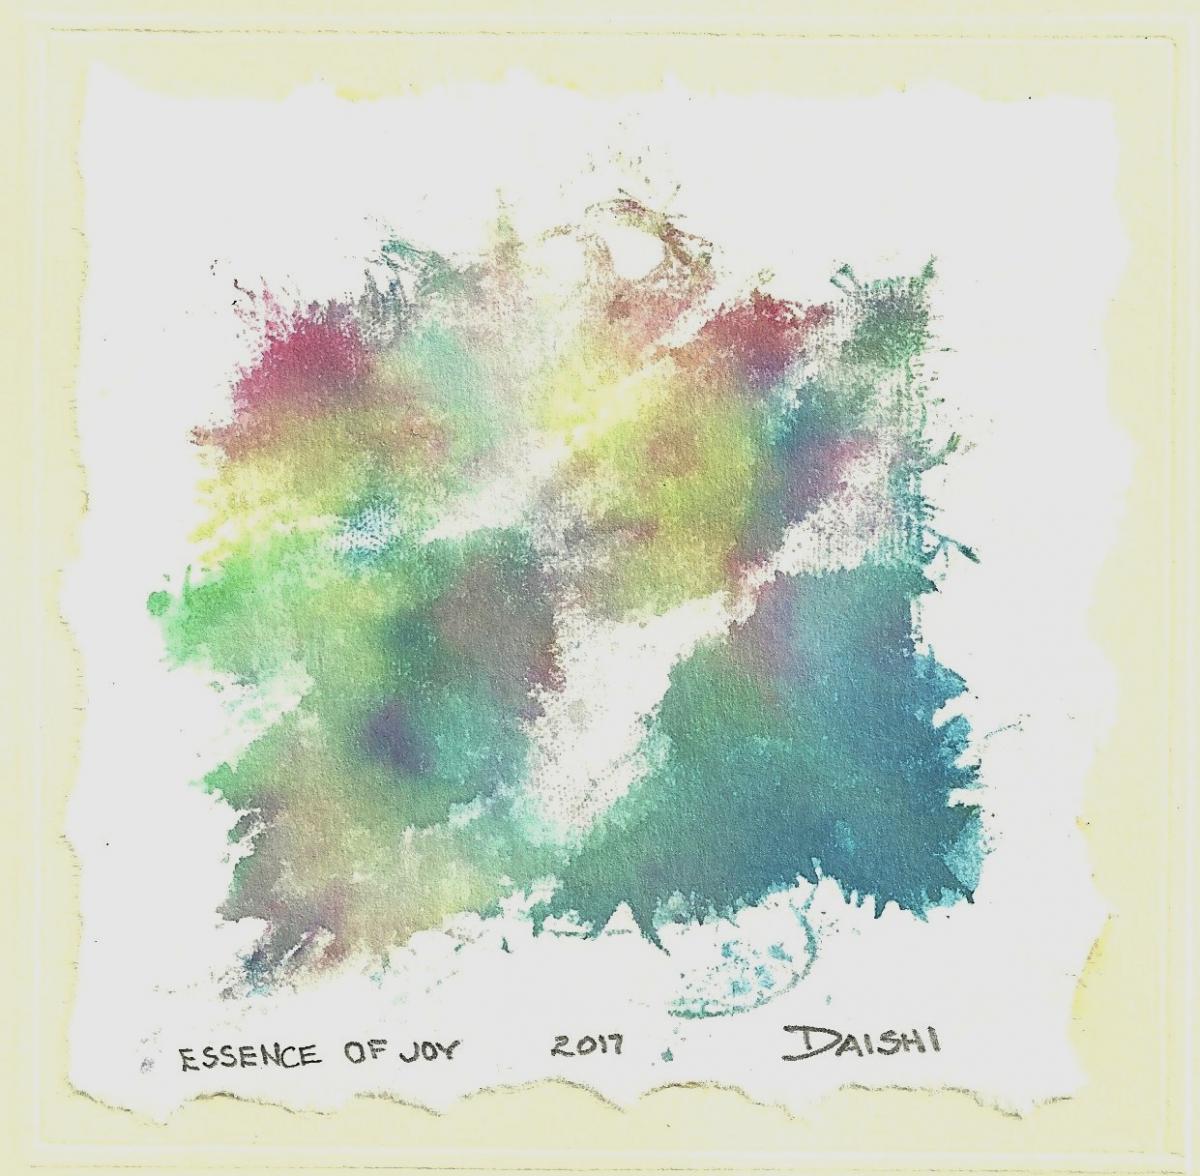 ESSENCE OF JOY 2017 DAISHI